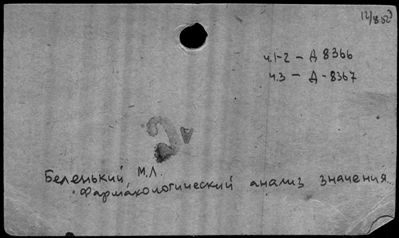 ч.1-2 – Д 8366
ч.3 – Д-8367
Беленький М.Л.
Фармакологический анализ значения